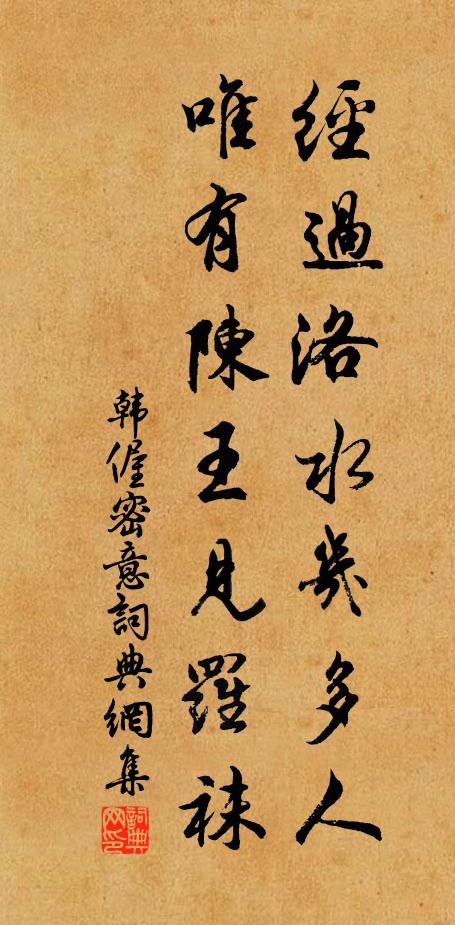 經過洛水幾多人
唯有陳王見羅袜
韩偓密意詞典網集
詞典網印